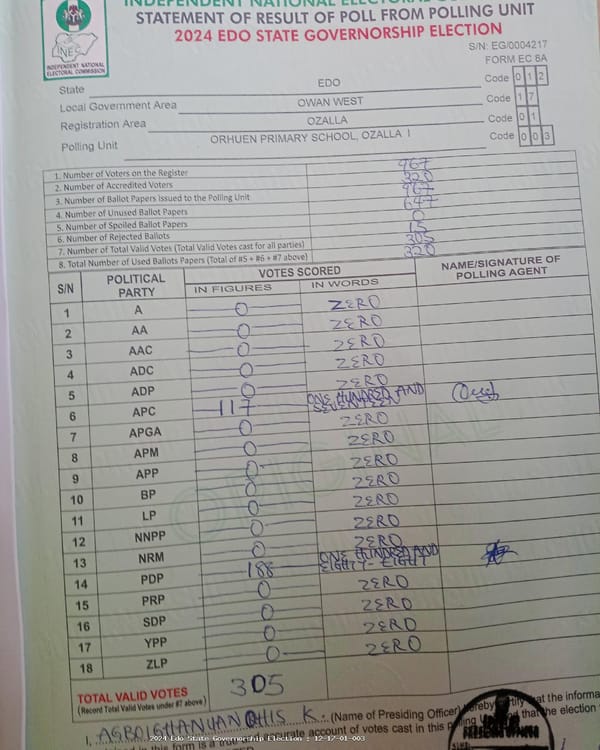 INDEPENDENT NATIONAL ELECTORAL
STATEMENT OF RESULT OF POLL FROM POLLING UNIT
2024 EDO STATE GOVERNORSHIP ELECTION
INEC
INDEPENDENT NATIONAL
ELECTORAL COMMISSION
S/N: EG/0004217
FORM EC 8A
State EDO Code 0 1 2
Local Government Area OWAN WEST Code 1 7
Registration Area OZALLA Code 0 1
Polling Unit ORHUEN PRIMARY SCHOOL, OZALLA I Code 0 0 3
1. Number of Voters on the Register 967
2. Number of Accredited Voters 320
3. Number of Ballot Papers Issued to the Polling Unit 967
4. Number of Unused Ballot Papers 647
5. Number of Spoiled Ballot Papers 0
6. Number of Rejected Ballots 15
7. Number of Total Valid Votes (Total Valid Votes cast for all parties) 305
8. Total Number of Used Ballots Papers (Total of #5 + #6 + #7 above) 320
S/N POLITICAL PARTY VOTES SCORED NAME/SIGNATURE OF POLLING AGENT
IN FIGURES IN WORDS
1 A 0 ZERO
2 AA 0 ZERO
3 AAC 0 ZERO
4 ADC 0 ZERO
5 ADP 0 ZERO
6 APC 117 ONE HUNDRED AND SEVENTEEN
7 APGA 0 ZERO
8 APM 0 ZERO
9 APP 0 ZERO
10 BP 0 ZERO
11 LP 0 ZERO
12 NNPP 0 ZERO
13 NRM 0 ZERO
14 PDP 188 ONE HUNDRED AND EIGHTY-EIGHT
15 PRP 0 ZERO
16 SDP 0 ZERO
17 YPP 0 ZERO
18 ZLP 0 ZERO
ORIGINAL
TOTAL VALID VOTES 305
(Record Total Valid Votes under #7 above)
I, (Name of Presiding Officer) hereby certify that the informa
account of votes cast in this that the election
2024 Edo State Governorship Election : 12-17-01-003